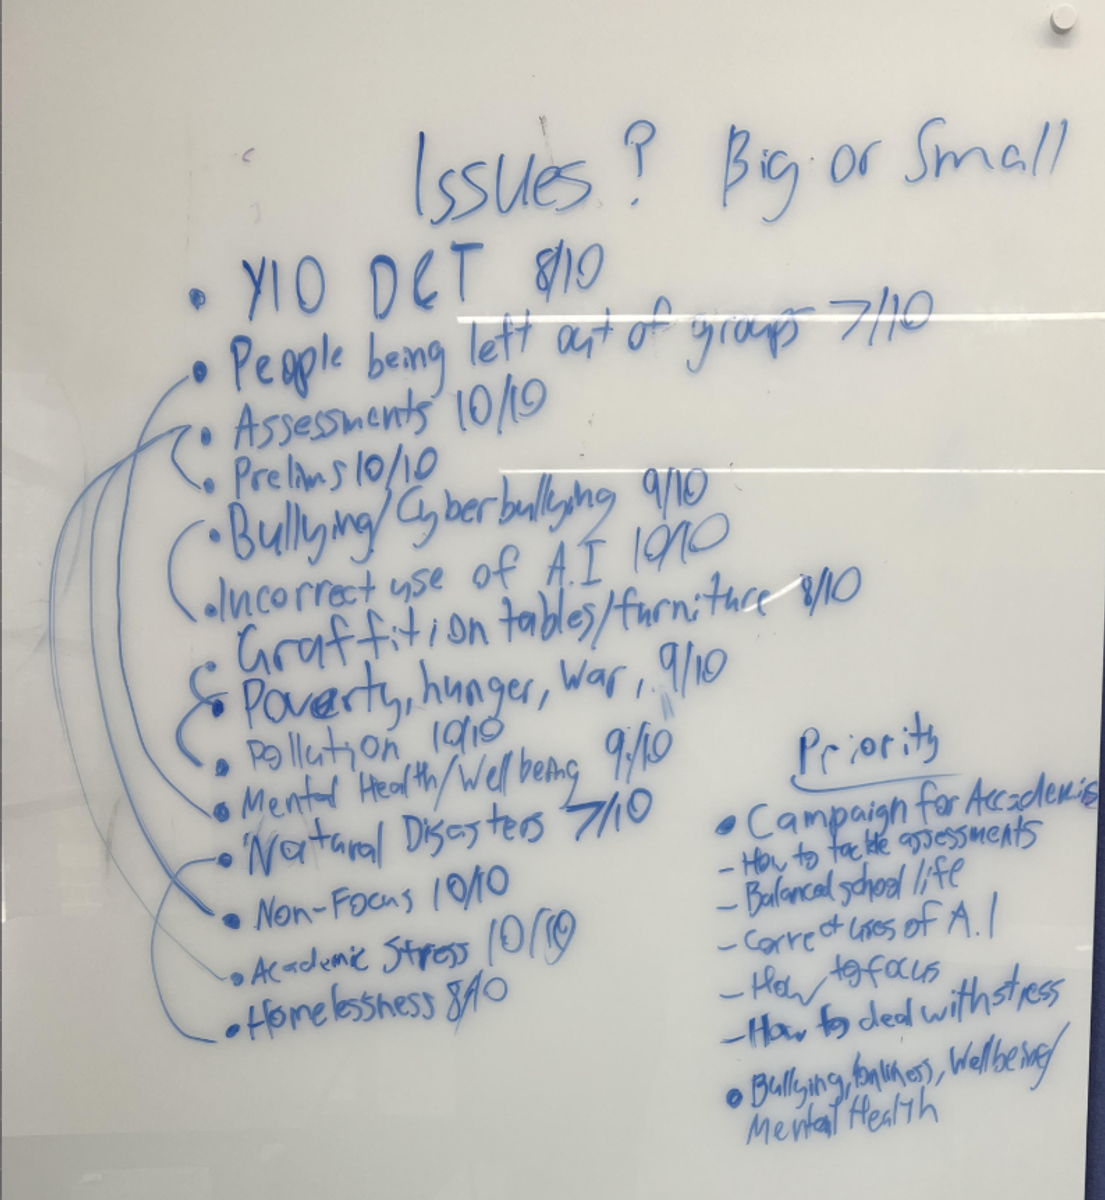 Issues? Big or Small
• Y10 DCT 8/10
• People being left out of groups 7/10
• Assessments 10/10
• Prelims 10/10
• Bullying/Cyberbullying 9/10
• Incorrect use of A.I 10/10
• Graffiti on tables/furniture 8/10
• Poverty, hunger, war, 9/10
• Pollution 10/10
• Mental Health/Wellbeing 9/10
• Natural Disasters 7/10
• Non-Focus 10/10
• Academic Stress 10/10
• Homelessness 8/10
Priority
• Campaign for Accademic
- How to tackle assessments
- Balanced school life
- Correct uses of A.I
- How to focus
- How to deal with stress
• Bullying, lonliness, Wellbeing/
Mental Health